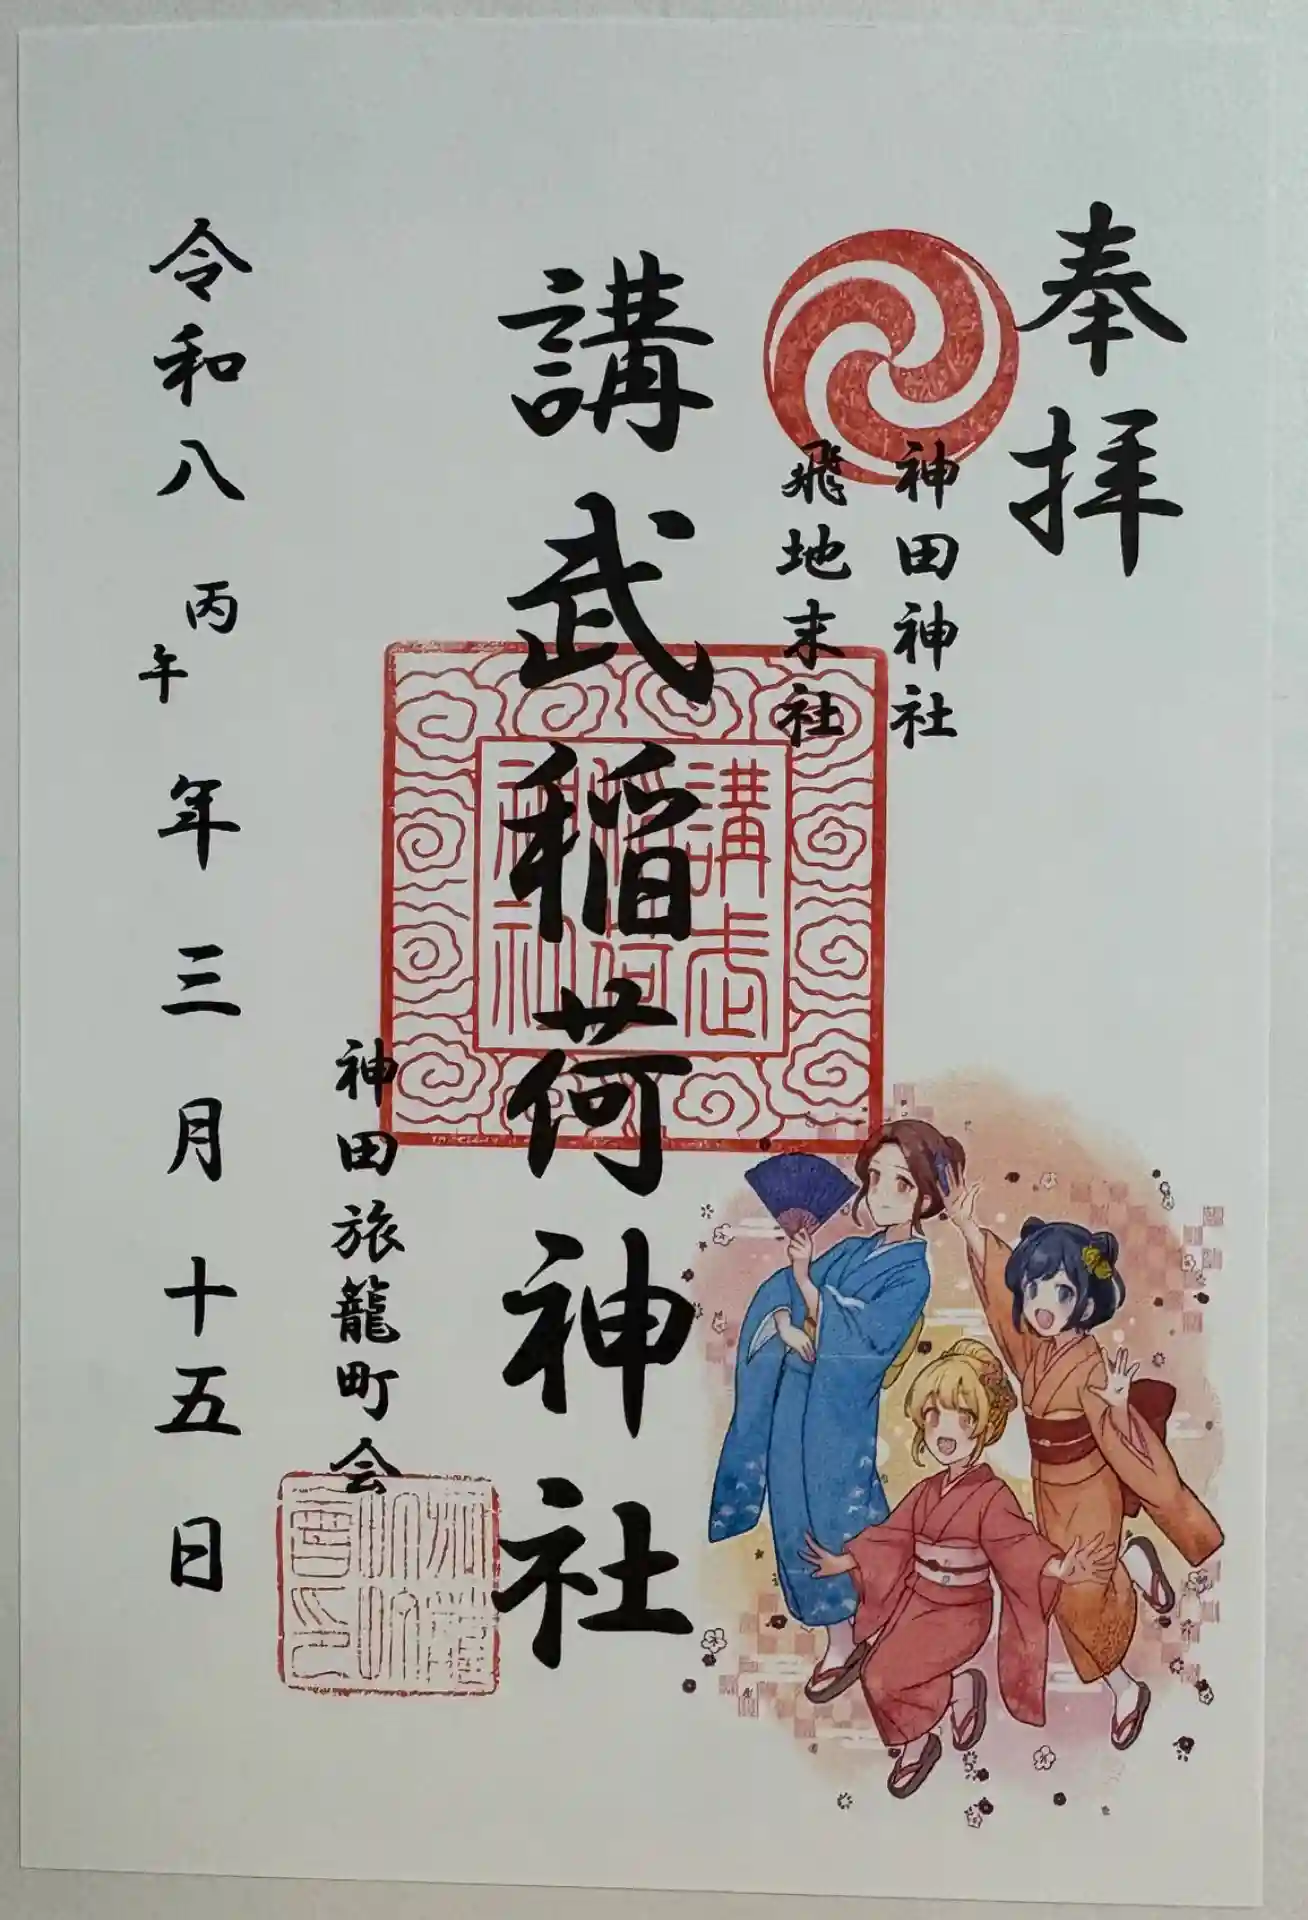 奉拝
神田神社
飛地末社
講武稲荷神社
講武稲荷神社
神田旅籠町会
令和八丙午年三月十五日